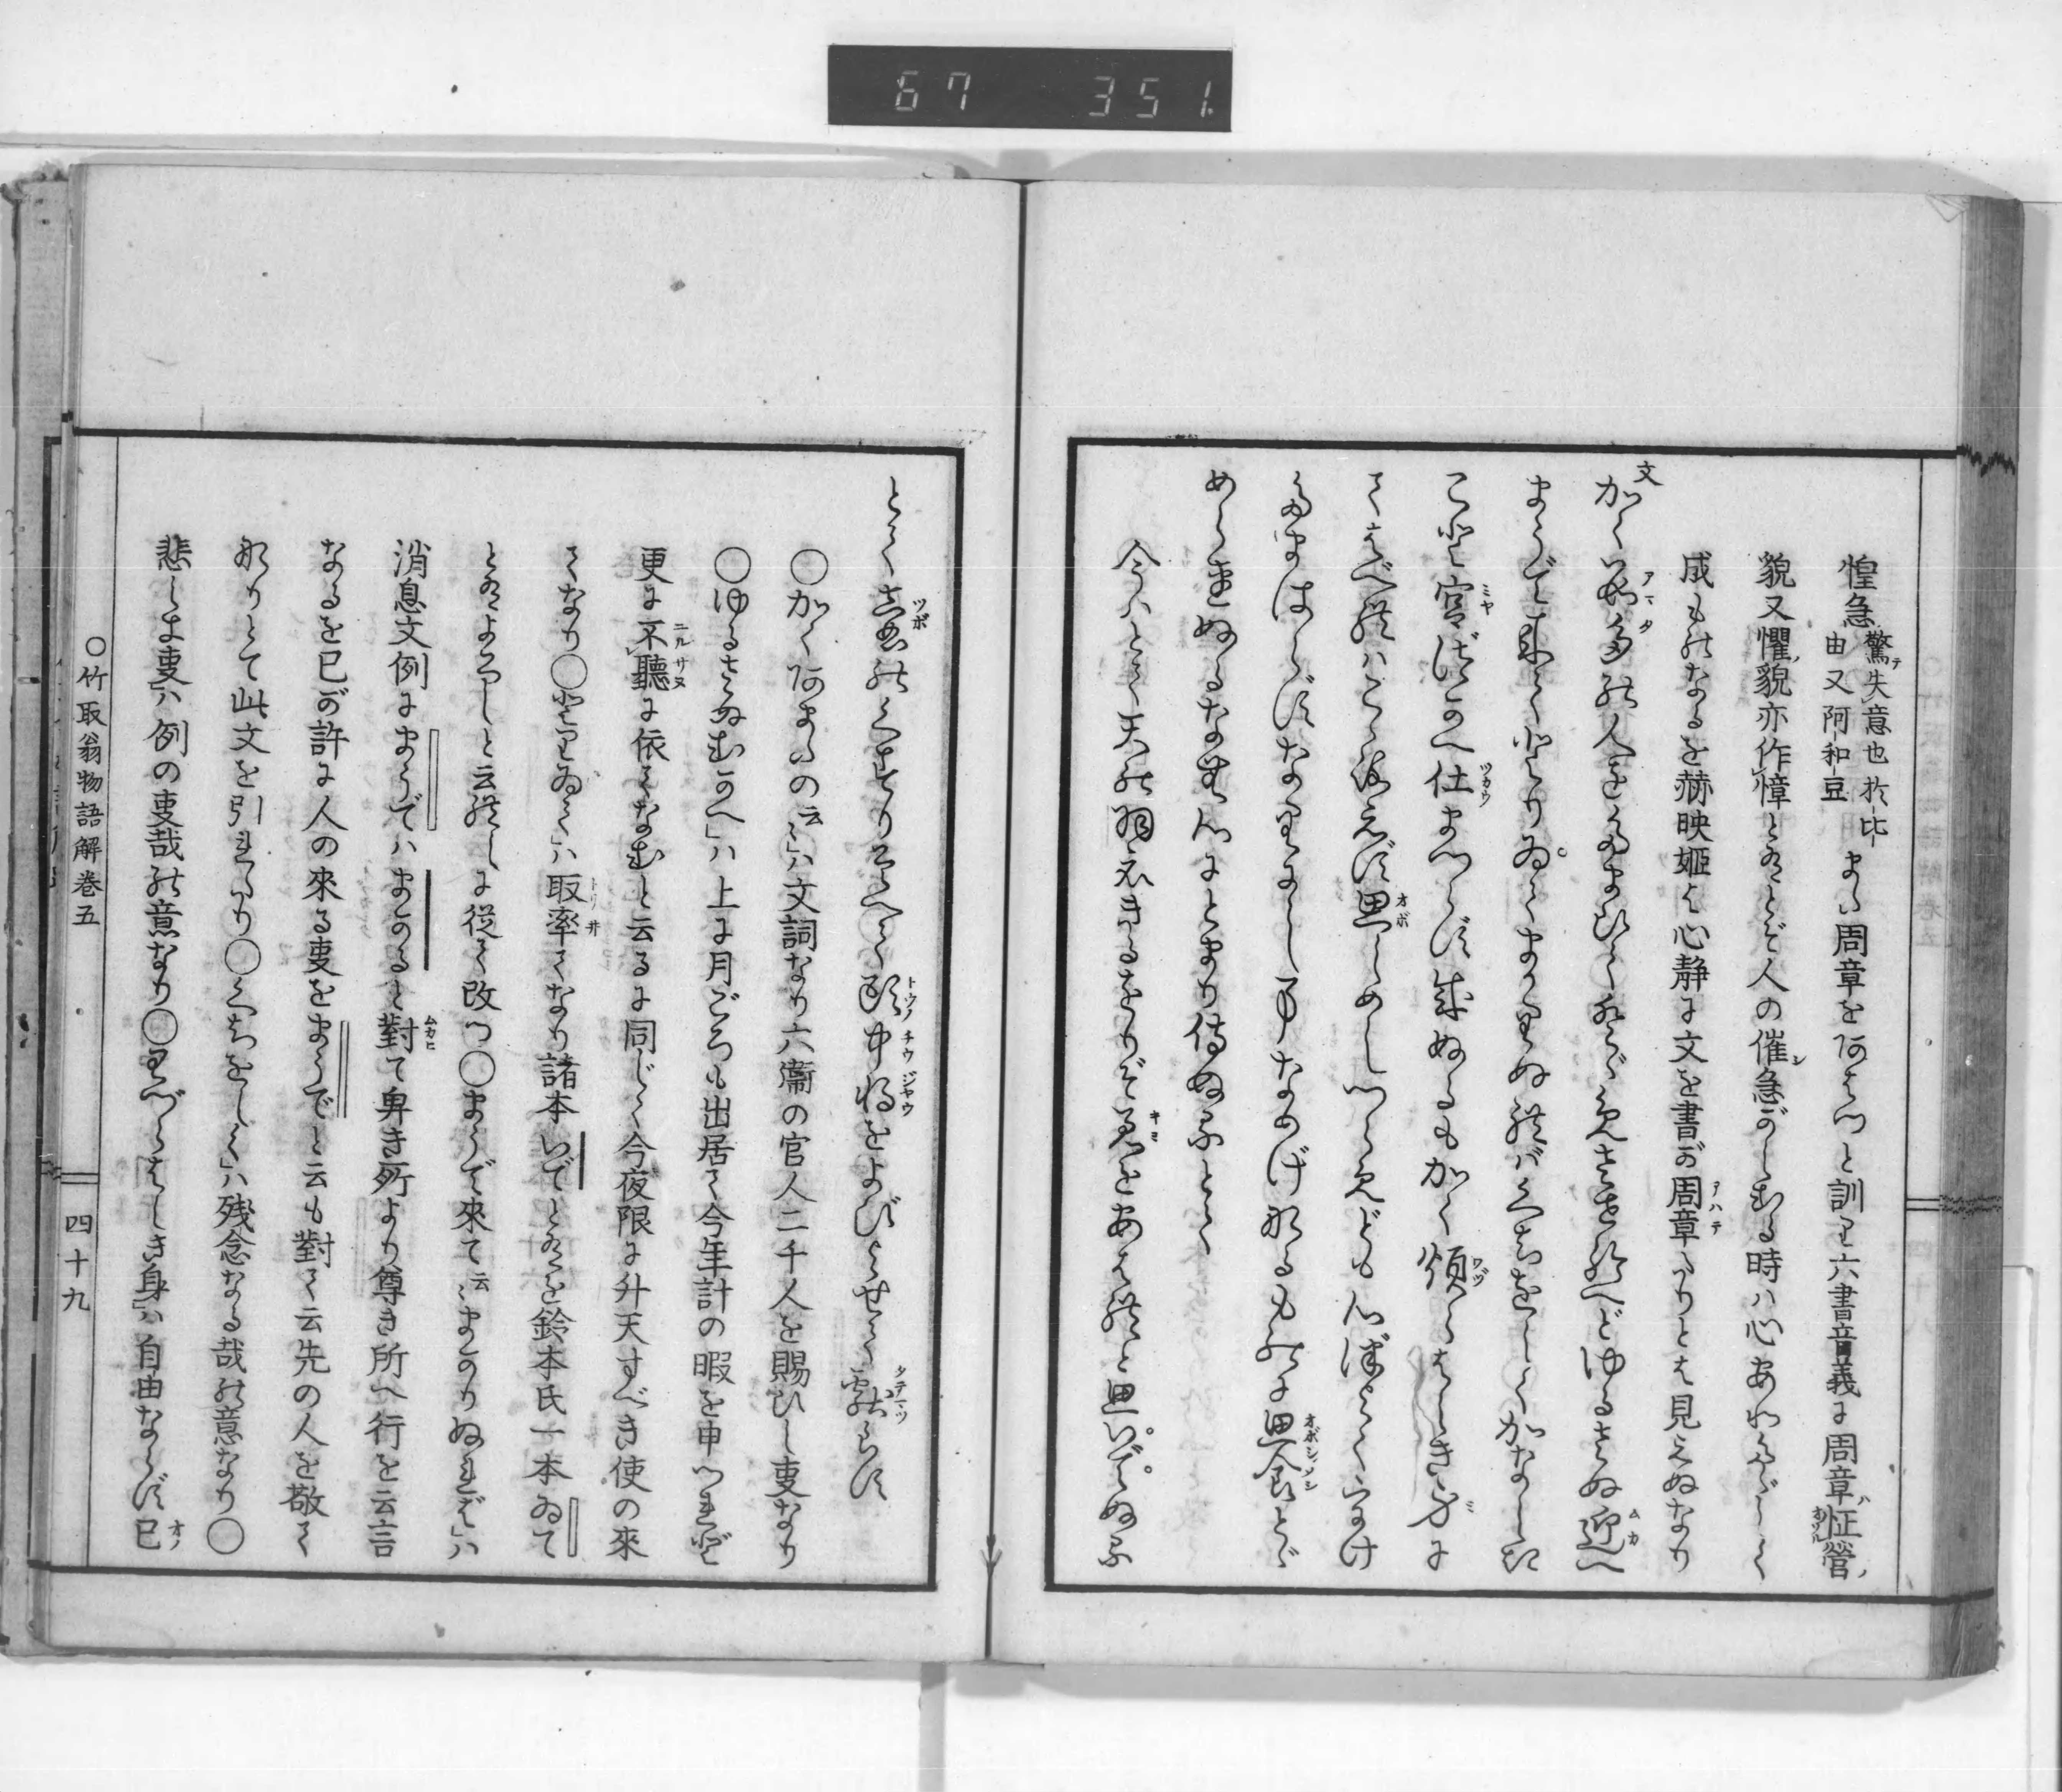 67 351
惶急驚テ失意也於比由又阿和豆また周章を阿はつと訓り六書音義に周章ハ怔營ノ
貌又懼ノ貌亦作慞とあるとぞ人の催シ急がしむる時ハ心あわたゞしく
成ものなるを赫映姫は心静に文を書が周章アハテたりとは見えぬなり
文かくあまたの人をたまひてとゞめさせ給へどゆるさぬ迎ムカへ
まうで来てとりゐてまかりぬればくちをしくかなしき
こと宮ミヤづかへ仕ツカウまつらず成ぬるもかく煩ワヅらはしき身ミに
てはべればこゝろえず思オボしめしつらめども心づよくうけ
たまはらずなりにし事なめげなるものに思食オボシメシとゞ
められぬるなむ心にとまり侍ぬるとて
今ハとて天の羽衣きるをりぞ君キミをあはれと思いでぬる
とて壺ツボのくすりそへて頭中将トウノチウジヤウをよびよせて献タテマツらす
○かくあまたの云々ハ文詞なり六衞の官人二千人を賜ひし事なり
○ゆるさぬむかへハ上に月ごろも出居て今年計の暇を申つれど
更に不聽ユルサヌに依てなむと云るに同じく今夜限に升天すべき使の來
てなり○とりゐてハ取率トリ井てなり諸本いでとあるを鈴木氏一本ゐて
とあるよろしと云れしに従て改つ○まうで來て云々まかりぬればハ
消息文例にまうでハまかると對ムカヒて卑き所より尊き所へ行を云言
なるを已が許に人の來る事をまうでと云も對て云先の人を敬て
なりとて此文を引れたり○くちをしくハ残念なる哉の意なり○
悲しき事ハ例の事哉の意なり○わづらはしき身ハ自由ならず已オノ
○竹取翁物語解卷五
四十九